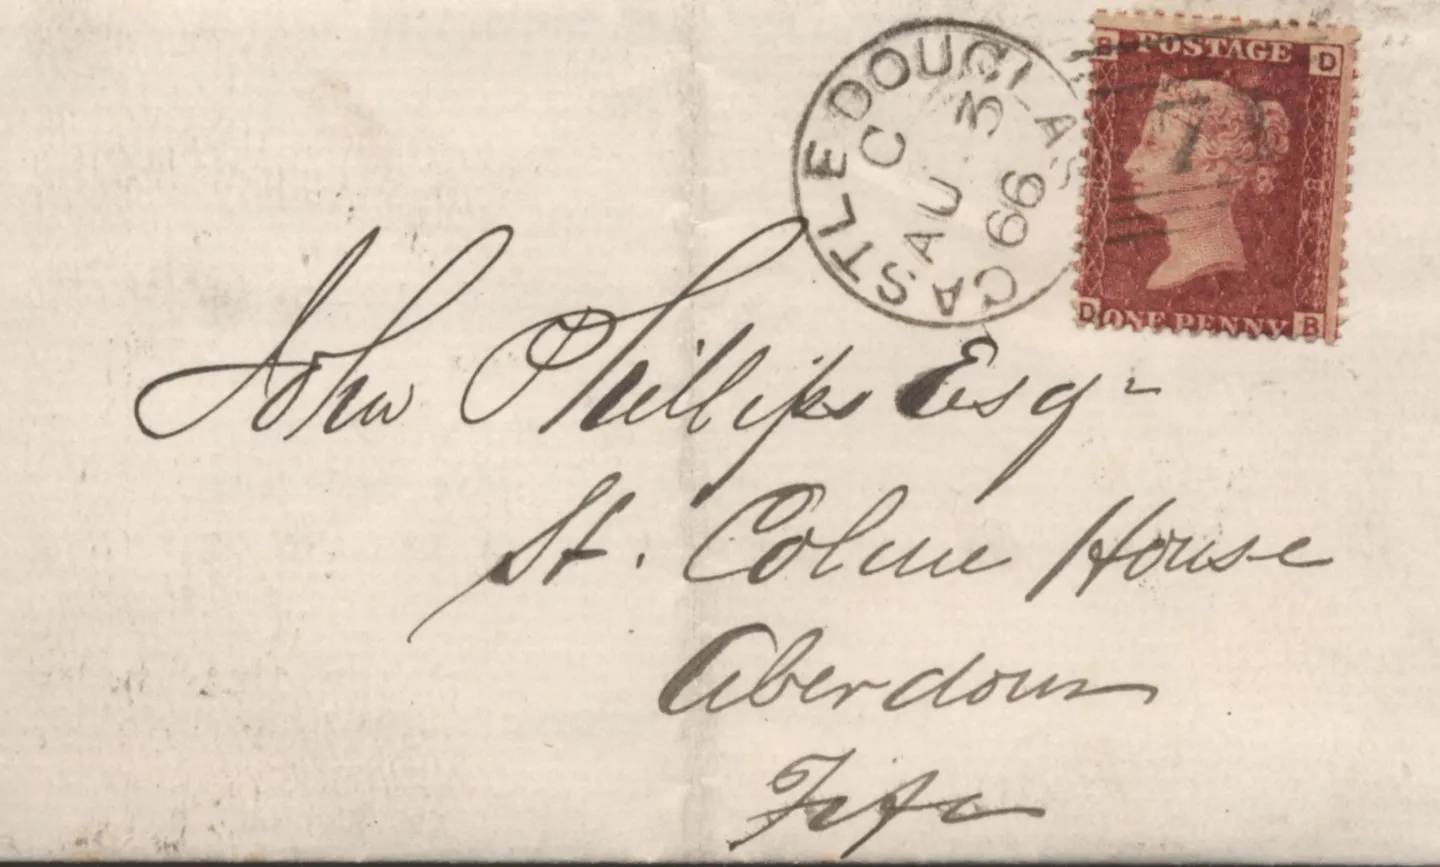 CASTLE DOUGLAS
C
AU 3
66
B POSTAGE D
73
D ONE PENNY B
John Phillips Esqr
St. Colme House
Aberdour
Fife